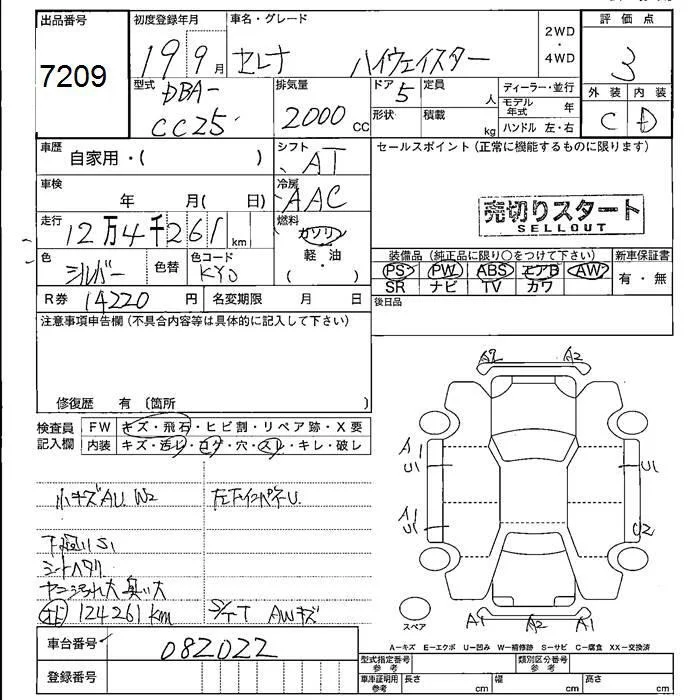 出品番号
7209
初度登録年月
19 9月
車名・グレード
セレナ ハイウェイスター
2WD
・
4WD
評価点
3
型式
DBA-
CC25
排気量
2000 CC
ドア
5
定員
人
形状
積載
kg
ディーラー・並行
モデル年式 年
ハンドル 左・右
外装
C
内装
D
車歴
自家用・( )
シフト
AT
セールスポイント(正常に機能するものに限ります)
売切りスタート
SELLOUT
車検
年 月( 日)
冷房
AAC
走行
12万4千261 km
燃料
ガソリン
軽・油
( ・ )
色
シルバー
色替
色コード
KY0
装備品(純正品に限り○をつけて下さい)
PS PW ABS エアB AW
SR ナビ TV カワ
新車保証書
有・無
R券 14220 円
名変期限 月 日
後日品
注意事項申告欄(不具合内容等は具体的に記入して下さい)
修復歴 有 〔箇所 〕
検査員記入欄
FW キズ・飛石・ヒビ割・リペア跡・X要
内装 キズ・汚レ・コゲ・穴・スレ・キレ・破レ
小キズAU. W2
左下インパネU.
下廻りS1
シートヘタリ
ヤニ汚れ大 臭い大
124261km
S/TT AWキズ
A2 A2
A1
U1
U1
A1
U1
U2
A1 A2 A1
スペア
A-キズ E-エクボ U-凹み W-補修跡 S-サビ C-腐食 XX-交換済
車台番号
082022
登録番号
型式指定番号 参考
類別区分番号 参考
車庫証明用 参考
長さ cm
幅 cm
高さ cm